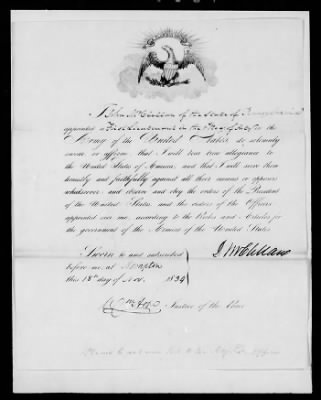 I John McClellan of the State of Pennsylvania
appointed a First Lieutenant in the
Army of the United States, do solemnly
swear or affirm, that I will bear true allegiance to
the United States of America, and that I will serve them
honestly and faithfully against all their enemies or opposers
whatsoever; and observe and obey the orders of the President
of the United States, and the orders of the Officers
appointed over me, according to the Rules and Articles for
the government of the Armies of the United States.
Sworn to and subscribed
before me, at
this 18th day of Nov. 1834
J. McClellan
Justice of the Peace